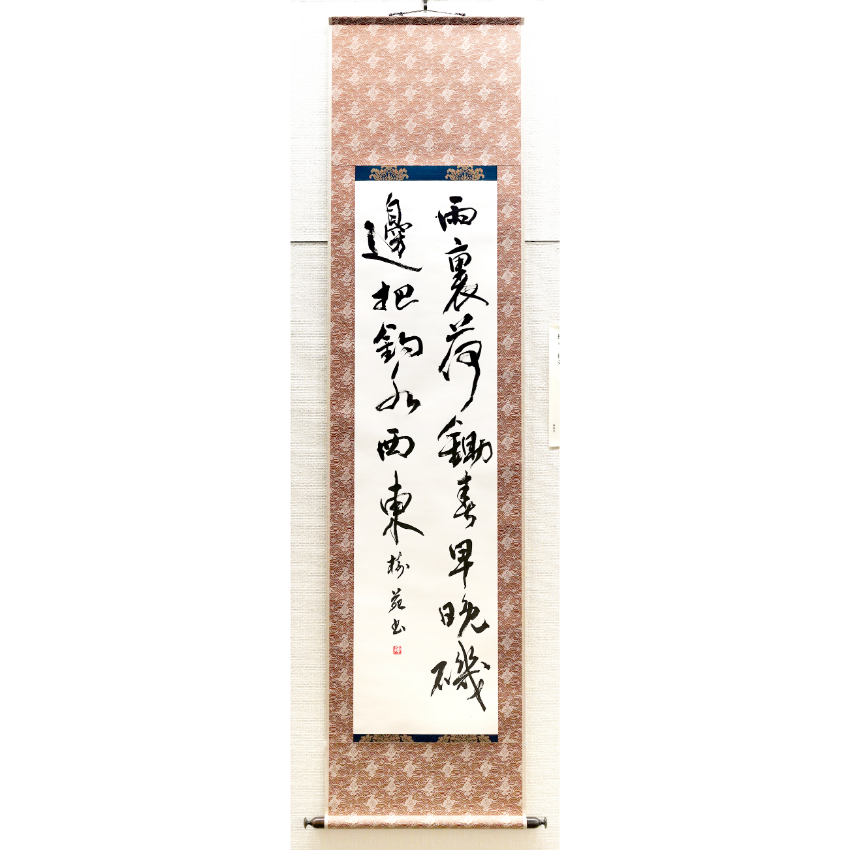 雨裏荷鋤春早晩磯
邊把釣水西東
苑書